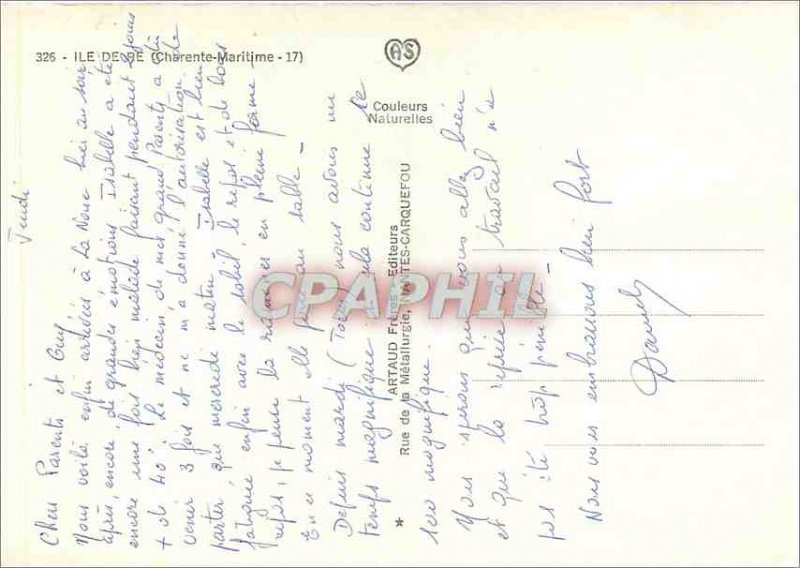 326 - ILE DE RÉ (Charente-Maritime - 17)
AS
Couleurs
Naturelles
ARTAUD Frères - Editeurs
Rue de la Métallurgie, NANTES-CARQUEFOU
CPAPHIL
Jeudi
Chers Parents et Guy
Nous voilà enfin arrivées à La Noue hier au soir
après, encore, de grandes émotions. Isabelle a été
encore une fois bien malade faisant pendant 2 jours
+ de 40°. Le médecin de mes grand Parents a dû
venir 3 fois et ne m'a donné l'autorisation de
partir que mercredi matin. Isabelle est bien
fatiguée enfin avec le soleil, le repos et de bons
repas, je pense la ramener en pleine forme -
En ce moment elle au sable -
Depuis mardi nous avons un
temps magnifique si cela continue le
sera magnifique.
Nous espérons que vous allez bien
et que la reprise de travail n'a
pas été trop pénible -
Nous vous embrassons bien fort